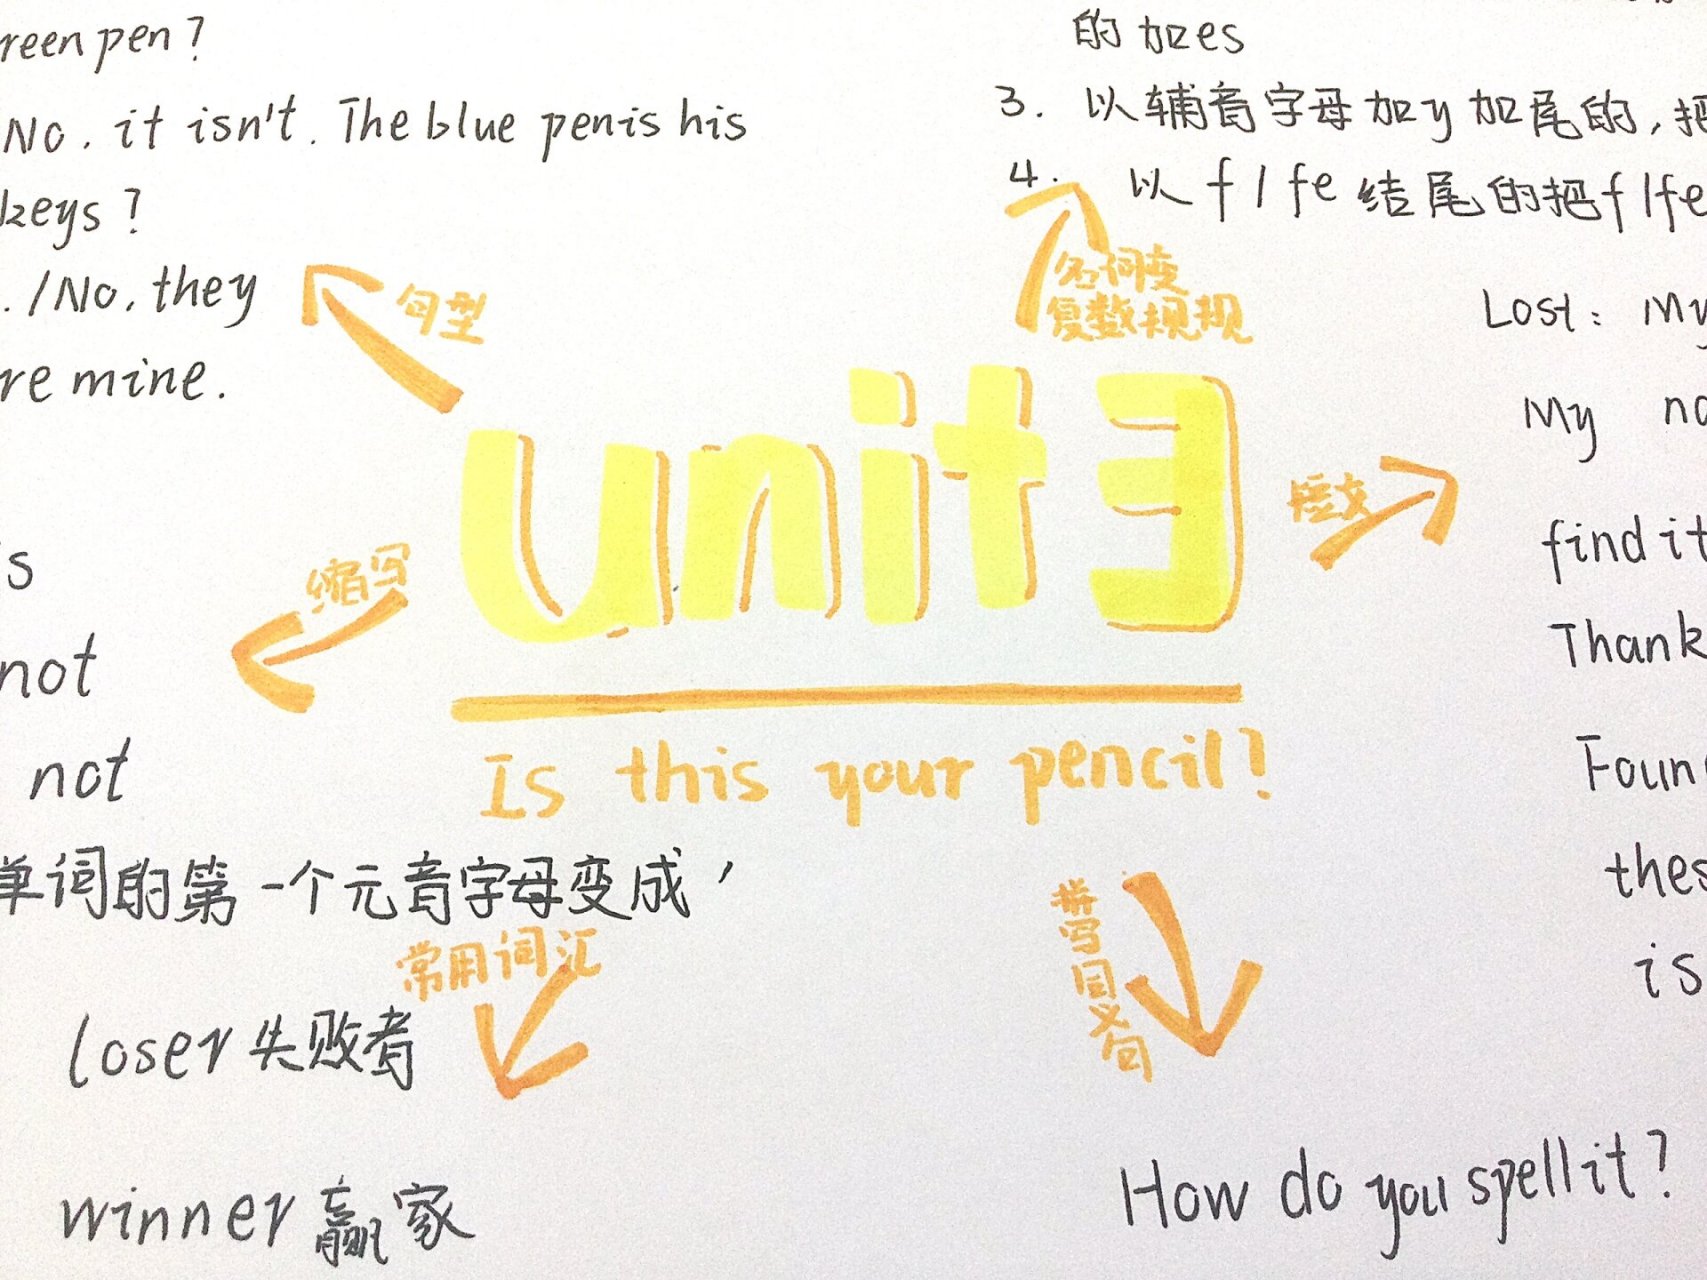 reen pen?
No. it isn't. The blue pen is his
keys?
./No, they
re mine.
句型
的加es
3. 以辅音字母加y加尾的,把
4. 以f/fe结尾的把f/fe
名词变
复数规规
Lost: My
My
短文
find it
Thank
Foun
thes
is
unit 3
Is this your pencil?
缩写
s
not
not
单词的第一个元音字母变成'
常用词汇
loser 失败者
winner 赢家
拼写同义句
How do you spell it?